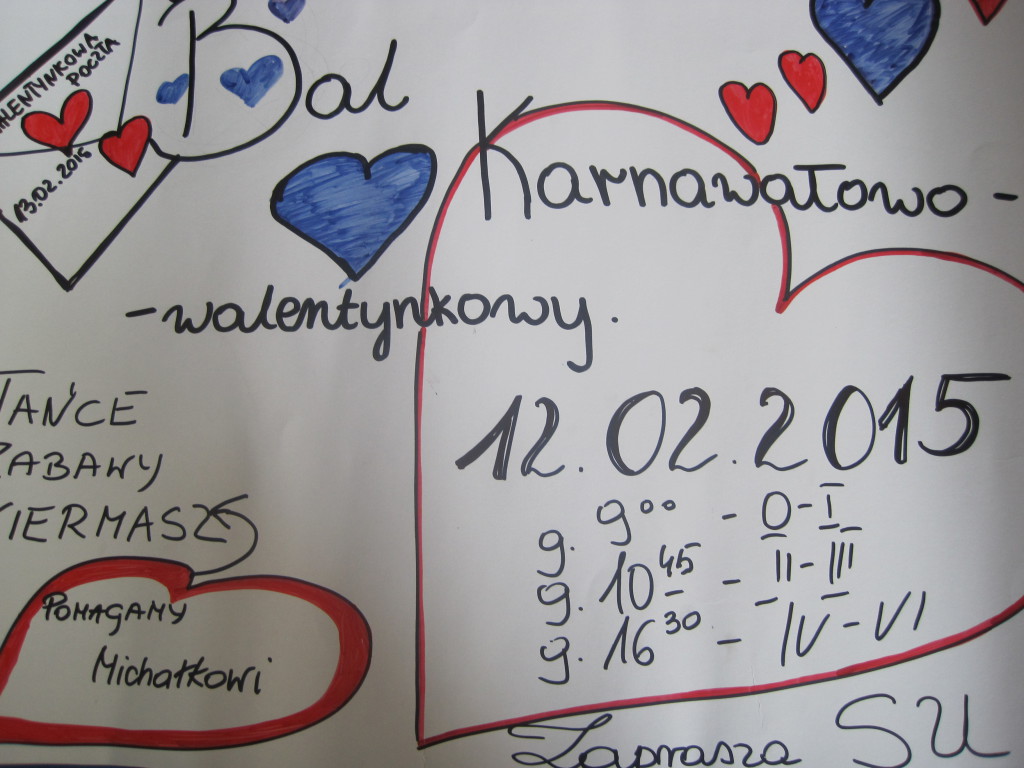 WALENTYNKOWA
POCZTA
13.02.2015
Bal
Karnawałowo -
- walentynkowy.
TAŃCE
ZABAWY
KIERMASZ
POMAGAMY
Michałkowi
12.02.2015
g. 9⁰⁰ - 0 - I
g. 10⁴⁵ - II - III
g. 16³⁰ - IV - VI
Zaprasza SU